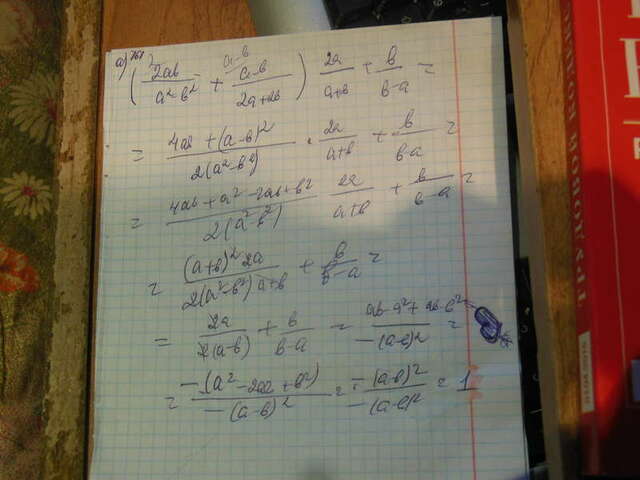 а) 767
(2ab/(a²-b²) + (a-b)/(2a+2b)) 2a/(a+b) + b/(b-a) =
= (4ab + (a-b)²)/(2(a²-b²)) · 2a/(a+b) + b/(b-a) =
= (4ab + a² - 2ab + b²)/(2(a²-b²)) 2a/(a+b) + b/(b-a) =
= (a+b)² 2a/(2(a²-b²) a+b) + b/(b-a) =
= 2a/(2(a-b)) + b/(b-a) = (ab-a²+ab-b²)/(-(a-b)²) =
= -(a²-2ab+b²)/(-(a-b)²) = -(a-b)²/(-(a-b)²) = 1